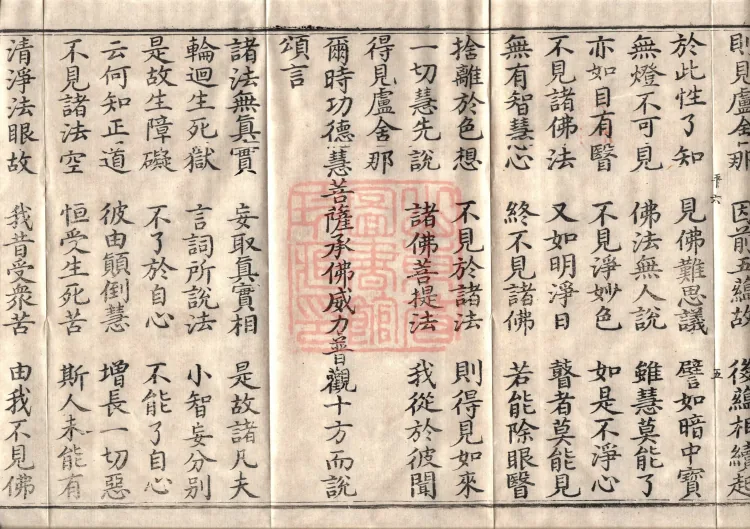 則見盧舍那 因前五蘊故 後蘊相續起
於此性了知 見佛難思議 譬如暗中寶
無燈不可見 佛法無人說 雖慧莫能了
亦如目有瞖 不見淨妙色 如是不淨心
不見諸佛法 又如明淨日 瞽者莫能見
無有智慧心 終不見諸佛 若能除眼瞖
捨離於色想 不見於諸法 則得見如來
一切慧先說 諸佛菩提法 我從於彼聞
得見盧舍那
爾時功德慧菩薩承佛威力普觀十方而說
頌言
諸法無真實 妄取真實相 是故諸凡夫
輪迴生死獄 言詞所說法 小智妄分別
是故生障礙 不了於自心 不能了自心
云何知正道 彼由顛倒慧 增長一切惡
不見諸法空 恒受生死苦 斯人未能有
清淨法眼故 我昔受衆苦 由我不見佛